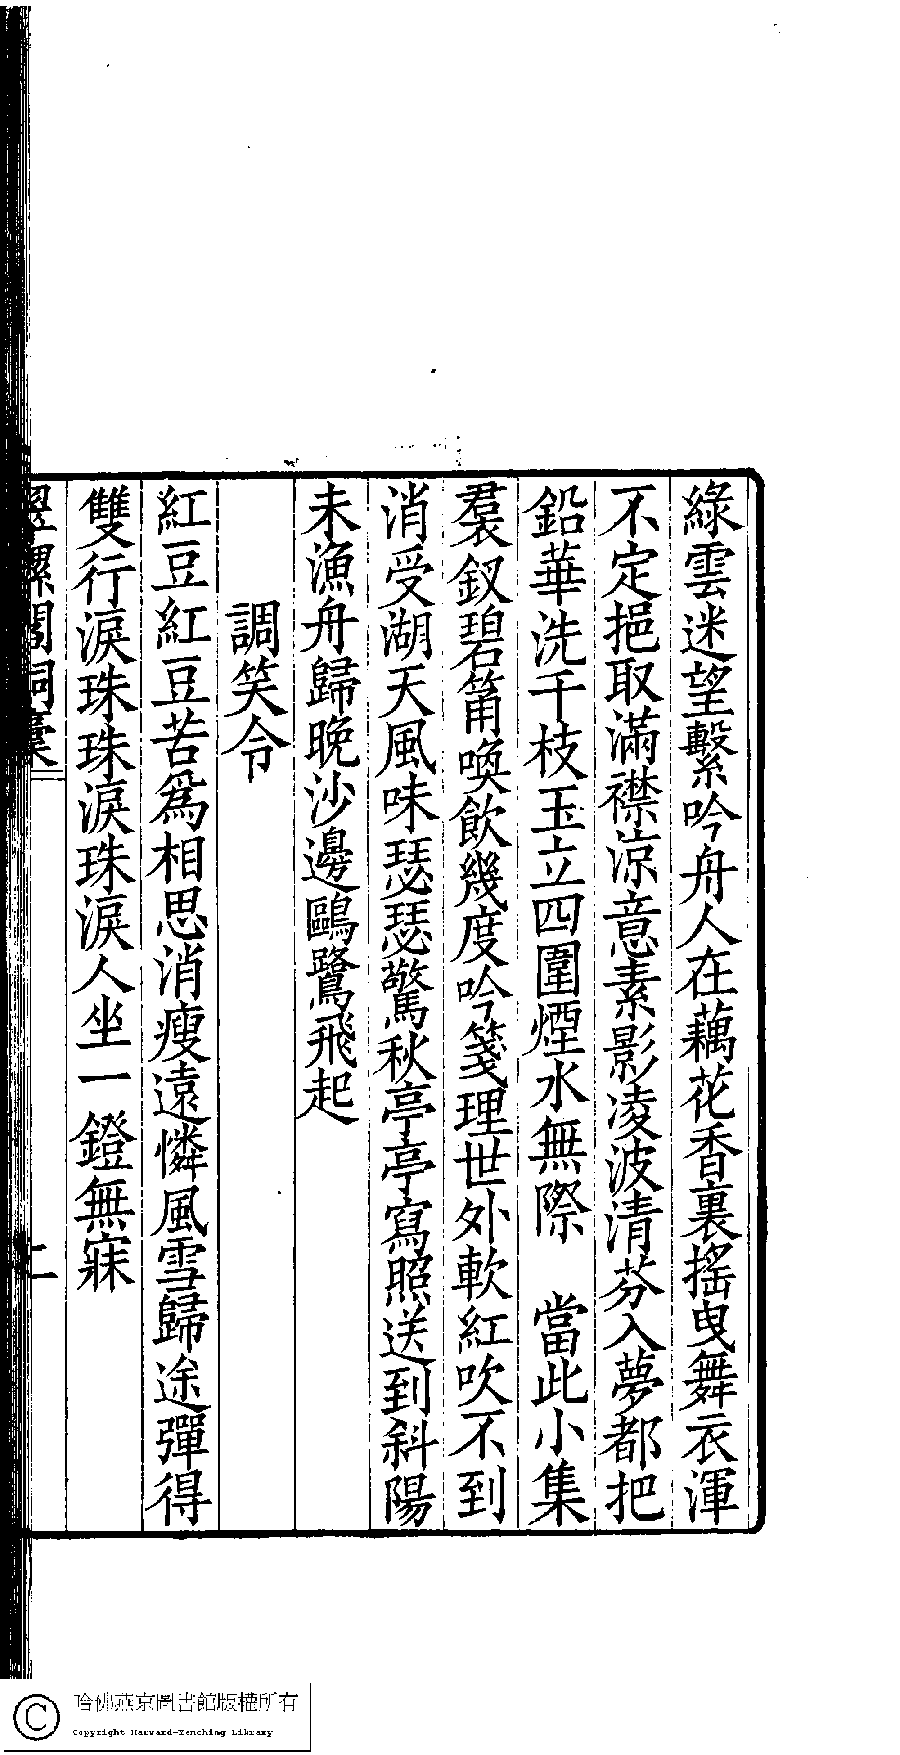 綠雲迷望繫吟舟人在藕花香裏搖曳舞衣渾
不定挹取滿襟涼意素影凌波清芬入夢都把
鉛華洗千枝玉立四圍煙水無際　當此小集
羣釵碧筩喚飲幾度吟箋理世外軟紅吹不到
消受湖天風味瑟瑟驚秋亭亭寫照送到斜陽
未漁舟歸晚沙邊鷗鷺飛起
調笑令
紅豆紅豆苦爲相思消瘦遠憐風雪歸途彈得
雙行淚珠珠淚珠淚人坐一鐙無寐
翠螺閣詞稾
哈佛燕京圖書館版權所有
Copyright Harvard-Yenching Library